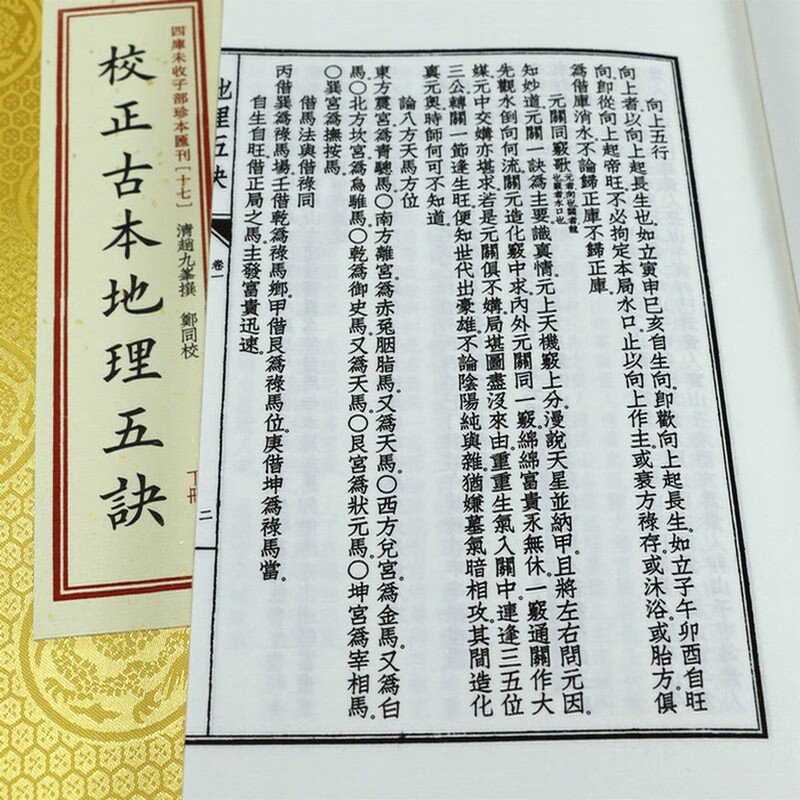 四庫未收子部珍本匯刊〔十七〕
校正古本地理五訣
清趙九峯撰 鄭同校
下冊
向上五行
向上者以向上起長生也如立寅申巳亥自生向卽歡向上起長生。如立子午卯酉自旺
向卽從向上起帝旺。不必拘定本局水口止以向上作主或衰方祿存。或沐浴。或胎方俱
為偕庫消水不論歸正庫不歸正庫。
元關同竅歌元者向也關者龍也竅者水口也
知妙道元關一訣為主要識真情。元上天機竅上分。漫說天星並納甲。且將左右問元因。
先觀水倒向何流。關元造化竅中求。內外元關同一竅。綿綿富貴永無休。一竅通關作大
媒。元中交媾亦堪求。若是元關俱不媾。局堪圖盡沒來由。重重生氣入關中。連逢三五位
三公。轉關一節逢生旺。便知世代出豪雄。不論陰陽純與雜。猶嫌墓氣暗相攻。其間造化
真元奧。時師何可不知道。
論八方天馬方位
東方震宮為青驄馬。〇南方離宮為赤兔胭脂馬。又為天馬。〇西方兌宮為金馬。又為白
馬。〇北方坎宮為烏騅馬。〇乾為御史馬。又為天馬。〇艮宮為狀元馬。〇坤宮為宰相馬。
〇巽宮為撫按馬。
偕馬法與偕祿同
丙偕巽為祿馬場。壬偕乾為祿馬鄉。甲偕艮為祿馬位。庚偕坤為祿馬當。
自生自旺偕正局之馬。主發富貴迅速。
地理五訣
卷一
二